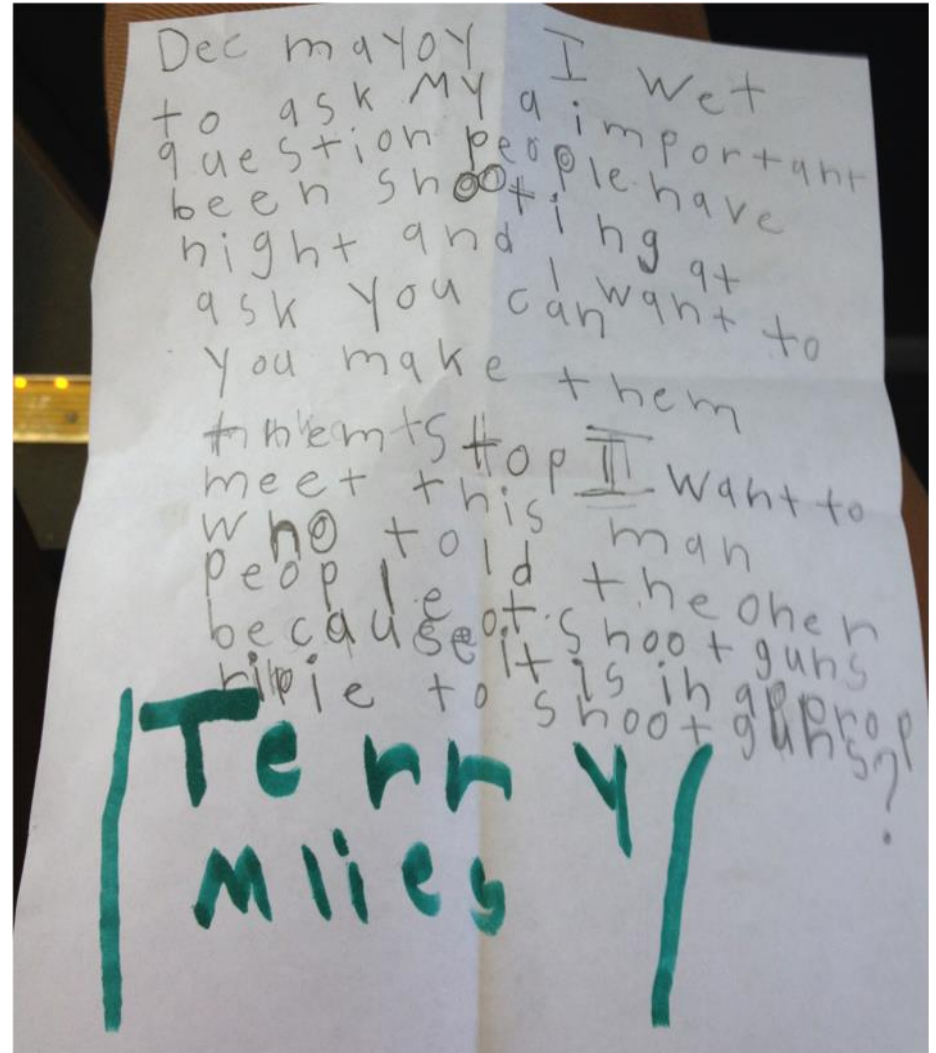 Dec mayoy I wet
to ask My a important
question people have
been shooting at
night and I want to
ask you can
you make them
stop I want to
meet this man
who told the oher
people ot shoot guns
because it is in approp
ripie to shoot guns?
Terry
Mlies